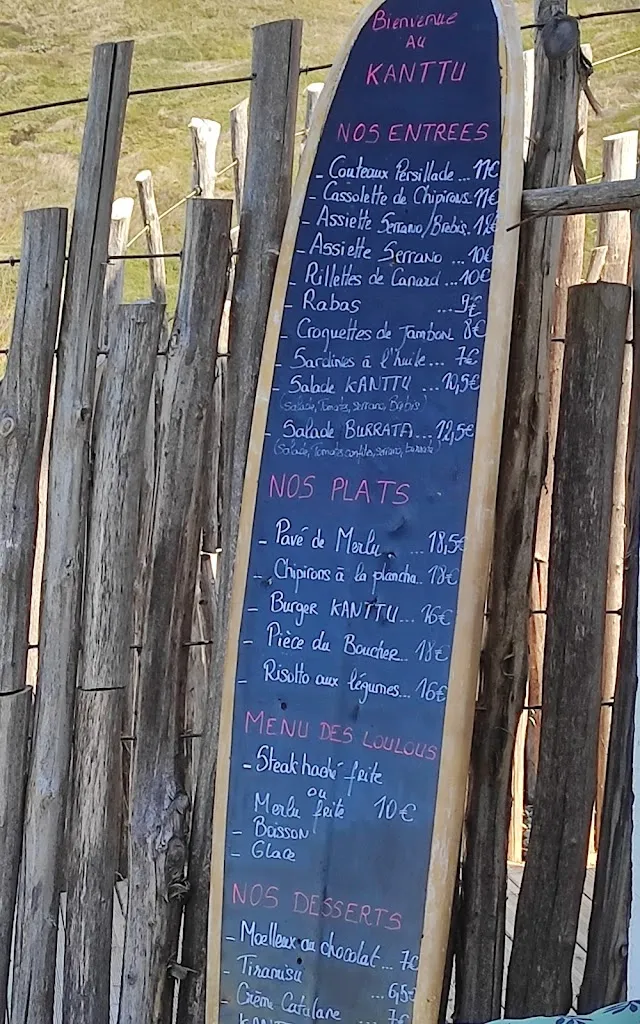 Bienvenue
Au
KANTTU
NOS ENTREES
- Couteaux Persillade... 11€
- Cassolette de Chipirons. 11€
- Assiette Serrano/Brebis. 12€
- Assiette Serrano ... 10€
- Rillettes de Canard ... 10€
- Rabas ... 9€
- Croquettes de Jambon 8€
- Sardines à l'huile ... 7€
- Salade KANTTU ... 10,5€
(Salade, Tomates, serrano, Brebis)
- Salade BURRATA ... 12,5€
(Salade, Tomates confites, serrano, burrata)
NOS PLATS
- Pavé de Merlu ... 18,5€
- Chipirons à la plancha.. 18€
- Burger KANTTU... 16€
- Pièce du Boucher.. 18€
- Risotto aux légumes... 16€
MENU DES LOULOUS
- Steak haché frite
ou
Merlu frite 10€
- Boisson
- Glace
NOS DESSERTS
- Moelleux au chocolat ... 7€
- Tiramisu ... 6,5€
- Crème Catalane ... 7€